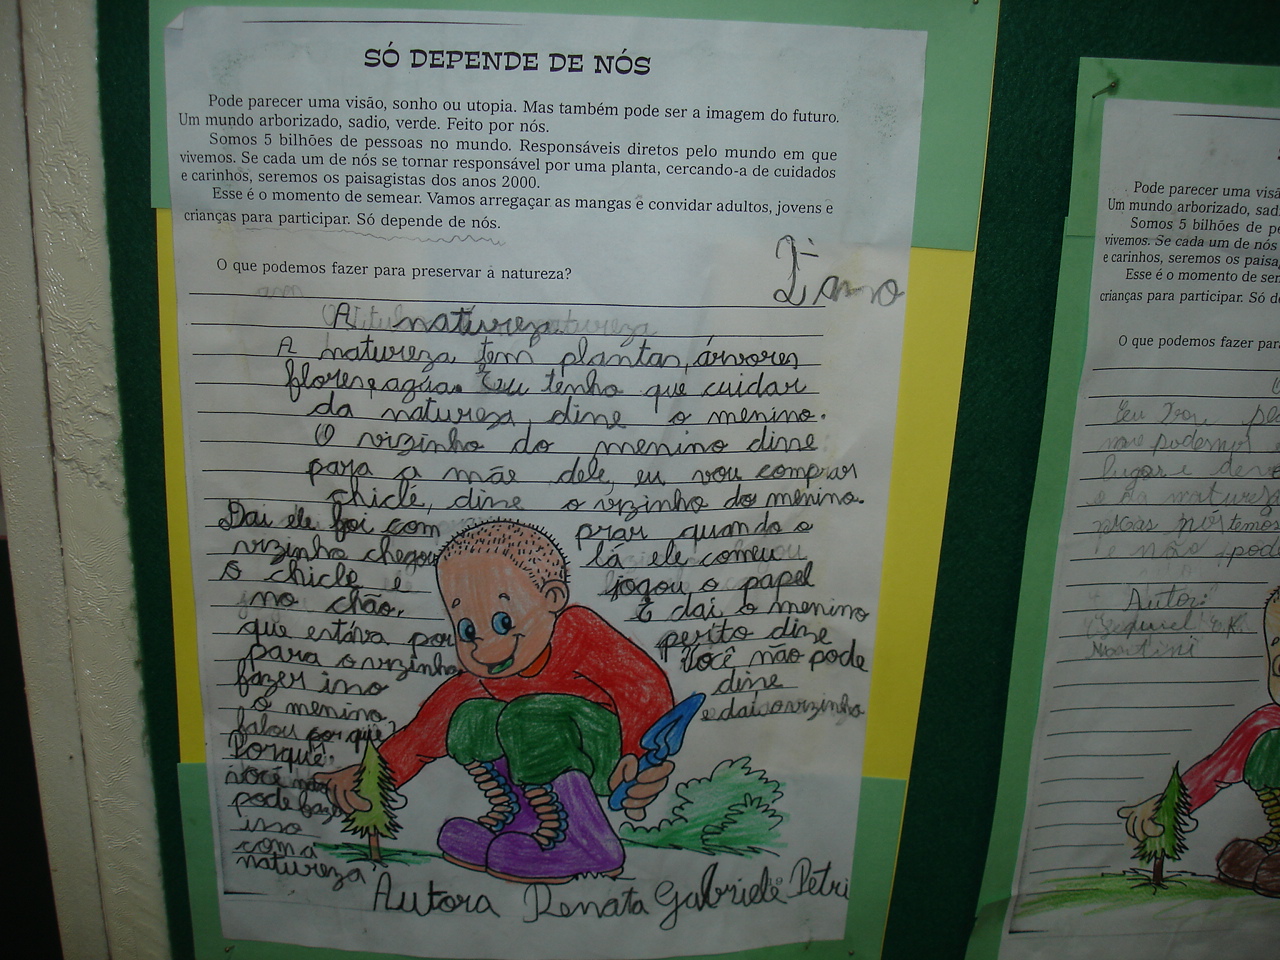 SÓ DEPENDE DE NÓS
Pode parecer uma visão, sonho ou utopia. Mas também pode ser a imagem do futuro.
Um mundo arborizado, sadio, verde. Feito por nós.
Somos 5 bilhões de pessoas no mundo. Responsáveis diretos pelo mundo em que
vivemos. Se cada um de nós se tornar responsável por uma planta, cercando-a de cuidados
e carinhos, seremos os paisagistas dos anos 2000.
Esse é o momento de semear. Vamos arregaçar as mangas e convidar adultos, jovens e
crianças para participar. Só depende de nós.
O que podemos fazer para preservar a natureza?
2º ano
A natureza
A natureza tem plantas, árvores
flores e agúa. Eu tenho que cuidar
da natureza, disse o menino.
O vizinho do menino disse
para a mãe dele, eu vou comprar
chiclé, disse o vizinho do menino.
Dai ele foi com prar quando o
vizinho chegou lá ele comeu
o chicle e jogou o papel
no chão, E dai o menino
que estáva por perto dise
para o vizinho Você não pode
fazer isso disse
o menino e dai o vizinho
falou por que?
Porquê
você não
pode faze
isso
com a
natureza
Autora Renata Gabriele Petri
Pode parecer uma visã
Um mundo arborizado, sad
Somos 5 bilhões de pe
vivemos. Se cada um de nós
e carinhos, seremos os paisa
Esse é o momento de sem
crianças para participar. Só d
O que podemos fazer para
Eu
podemos
lugar e
e na naturez
nós temos
e não pode
Autor:
Martini